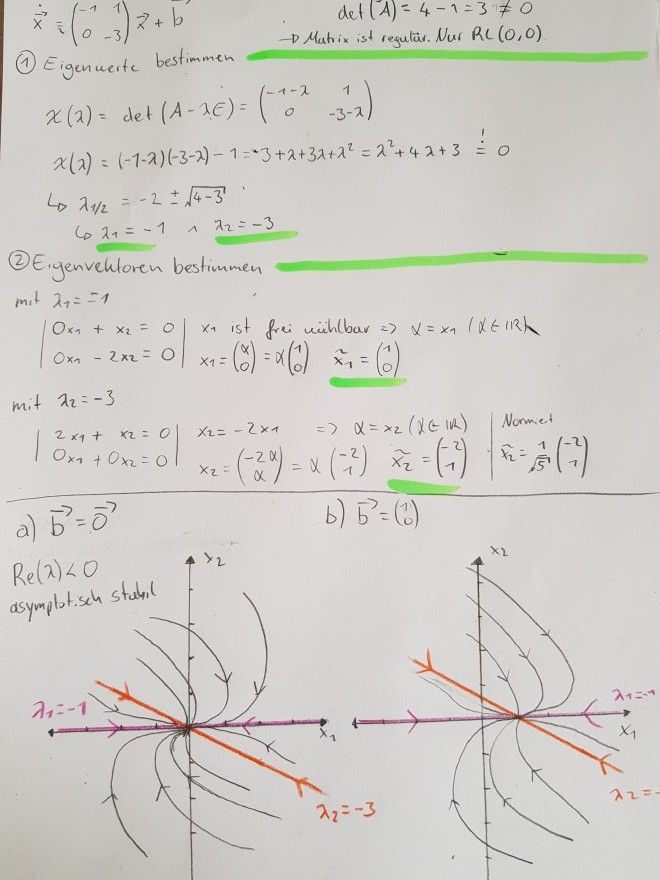 ẋ⃗ = (-1 1 / 0 -3) x⃗ + b⃗
det(A) = 4 - 1 = 3 ≠ 0
→ Matrix ist regulär. Nur RL (0,0)
① Eigenwerte bestimmen
χ(λ) = det (A - λE) = (-1-λ 1 / 0 -3-λ)
χ(λ) = (-1-λ)(-3-λ) - 1 = 3 + λ + 3λ + λ² = λ² + 4λ + 3 =! 0
↳ λ1/2 = -2 ± √4-3
↳ λ1 = -1 ∧ λ2 = -3
② Eigenvektoren bestimmen
mit λ1 = -1
| 0x1 + x2 = 0 | x1 ist frei wählbar => α = x1 (α ∈ ℝ)
| 0x1 - 2x2 = 0 | x1 = (α / 0) = α (1 / 0) x̃1 = (1 / 0)
mit λ2 = -3
| 2x1 + x2 = 0 | x2 = -2x1 => α = x2 (α ∈ ℝ)
| 0x1 + 0x2 = 0 | x2 = (-2α / α) = α (-2 / 1) x̃2 = (-2 / 1)
Normiert
x̃2 = 1/√5 (-2 / 1)
a) b⃗ = 0⃗
b) b⃗ = (1 / 0)
Re(λ) < 0
asymptotisch stabil
x2
λ1 = -1
x1
λ2 = -3
x2
λ1 = -1
x1
λ2 = -